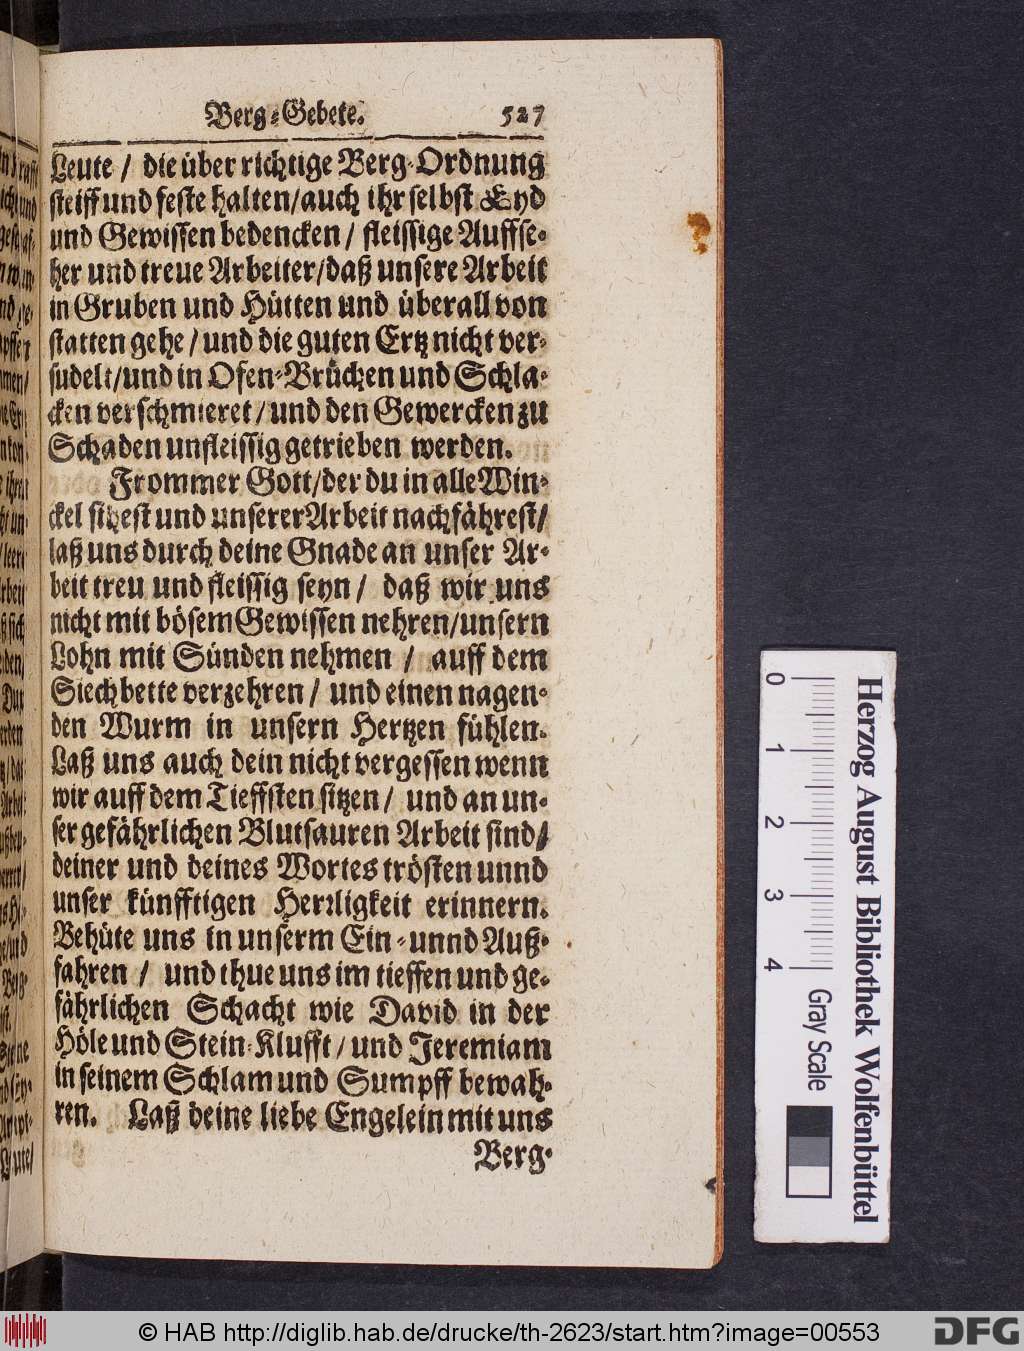 Berg-Gebete. 527
Leute / die über richtige Berg-Ordnung
steiff und feste halten/auch ihr selbst Eyd
und Gewissen bedencken / fleissige Auffse-
her und treue Arbeiter/daß unsere Arbeit
in Gruben und Hütten und überall von
statten gehe / und die guten Ertz nicht ver-
sudelt/und in Ofen-Brüchen und Schla-
cken verschmieret / und den Gewercken zu
Schaden unfleissig getrieben werden.
Frommer Gott/der du in alle Win-
ckel sihest und unserer Arbeit nachfährest/
laß uns durch deine Gnade an unser Ar-
beit treu und fleissig seyn / daß wir uns
nicht mit bösem Gewissen nehren/unsern
Lohn mit Sünden nehmen / auff dem
Siechbette verzehren / und einen nagen-
den Wurm in unsern Hertzen fühlen.
Laß uns auch dein nicht vergessen wenn
wir auff dem Tieffsten sitzen / und an un-
ser gefährlichen Blutsauren Arbeit sind/
deiner und deines Wortes trösten unnd
unser künfftigen Herrligkeit erinnern.
Behüte uns in unserm Ein- unnd Auß-
fahren / und thue uns im tieffen und ge-
fährlichen Schacht wie David in der
Höle und Stein-Klufft / und Jeremiam
in seinem Schlam und Sumpff bewah-
ren. Laß deine liebe Engelein mit uns
Berg-
0 1 2 3 4
Gray Scale
Herzog August Bibliothek Wolfenbüttel
© HAB http://diglib.hab.de/drucke/th-2623/start.htm?image=00553
DFG